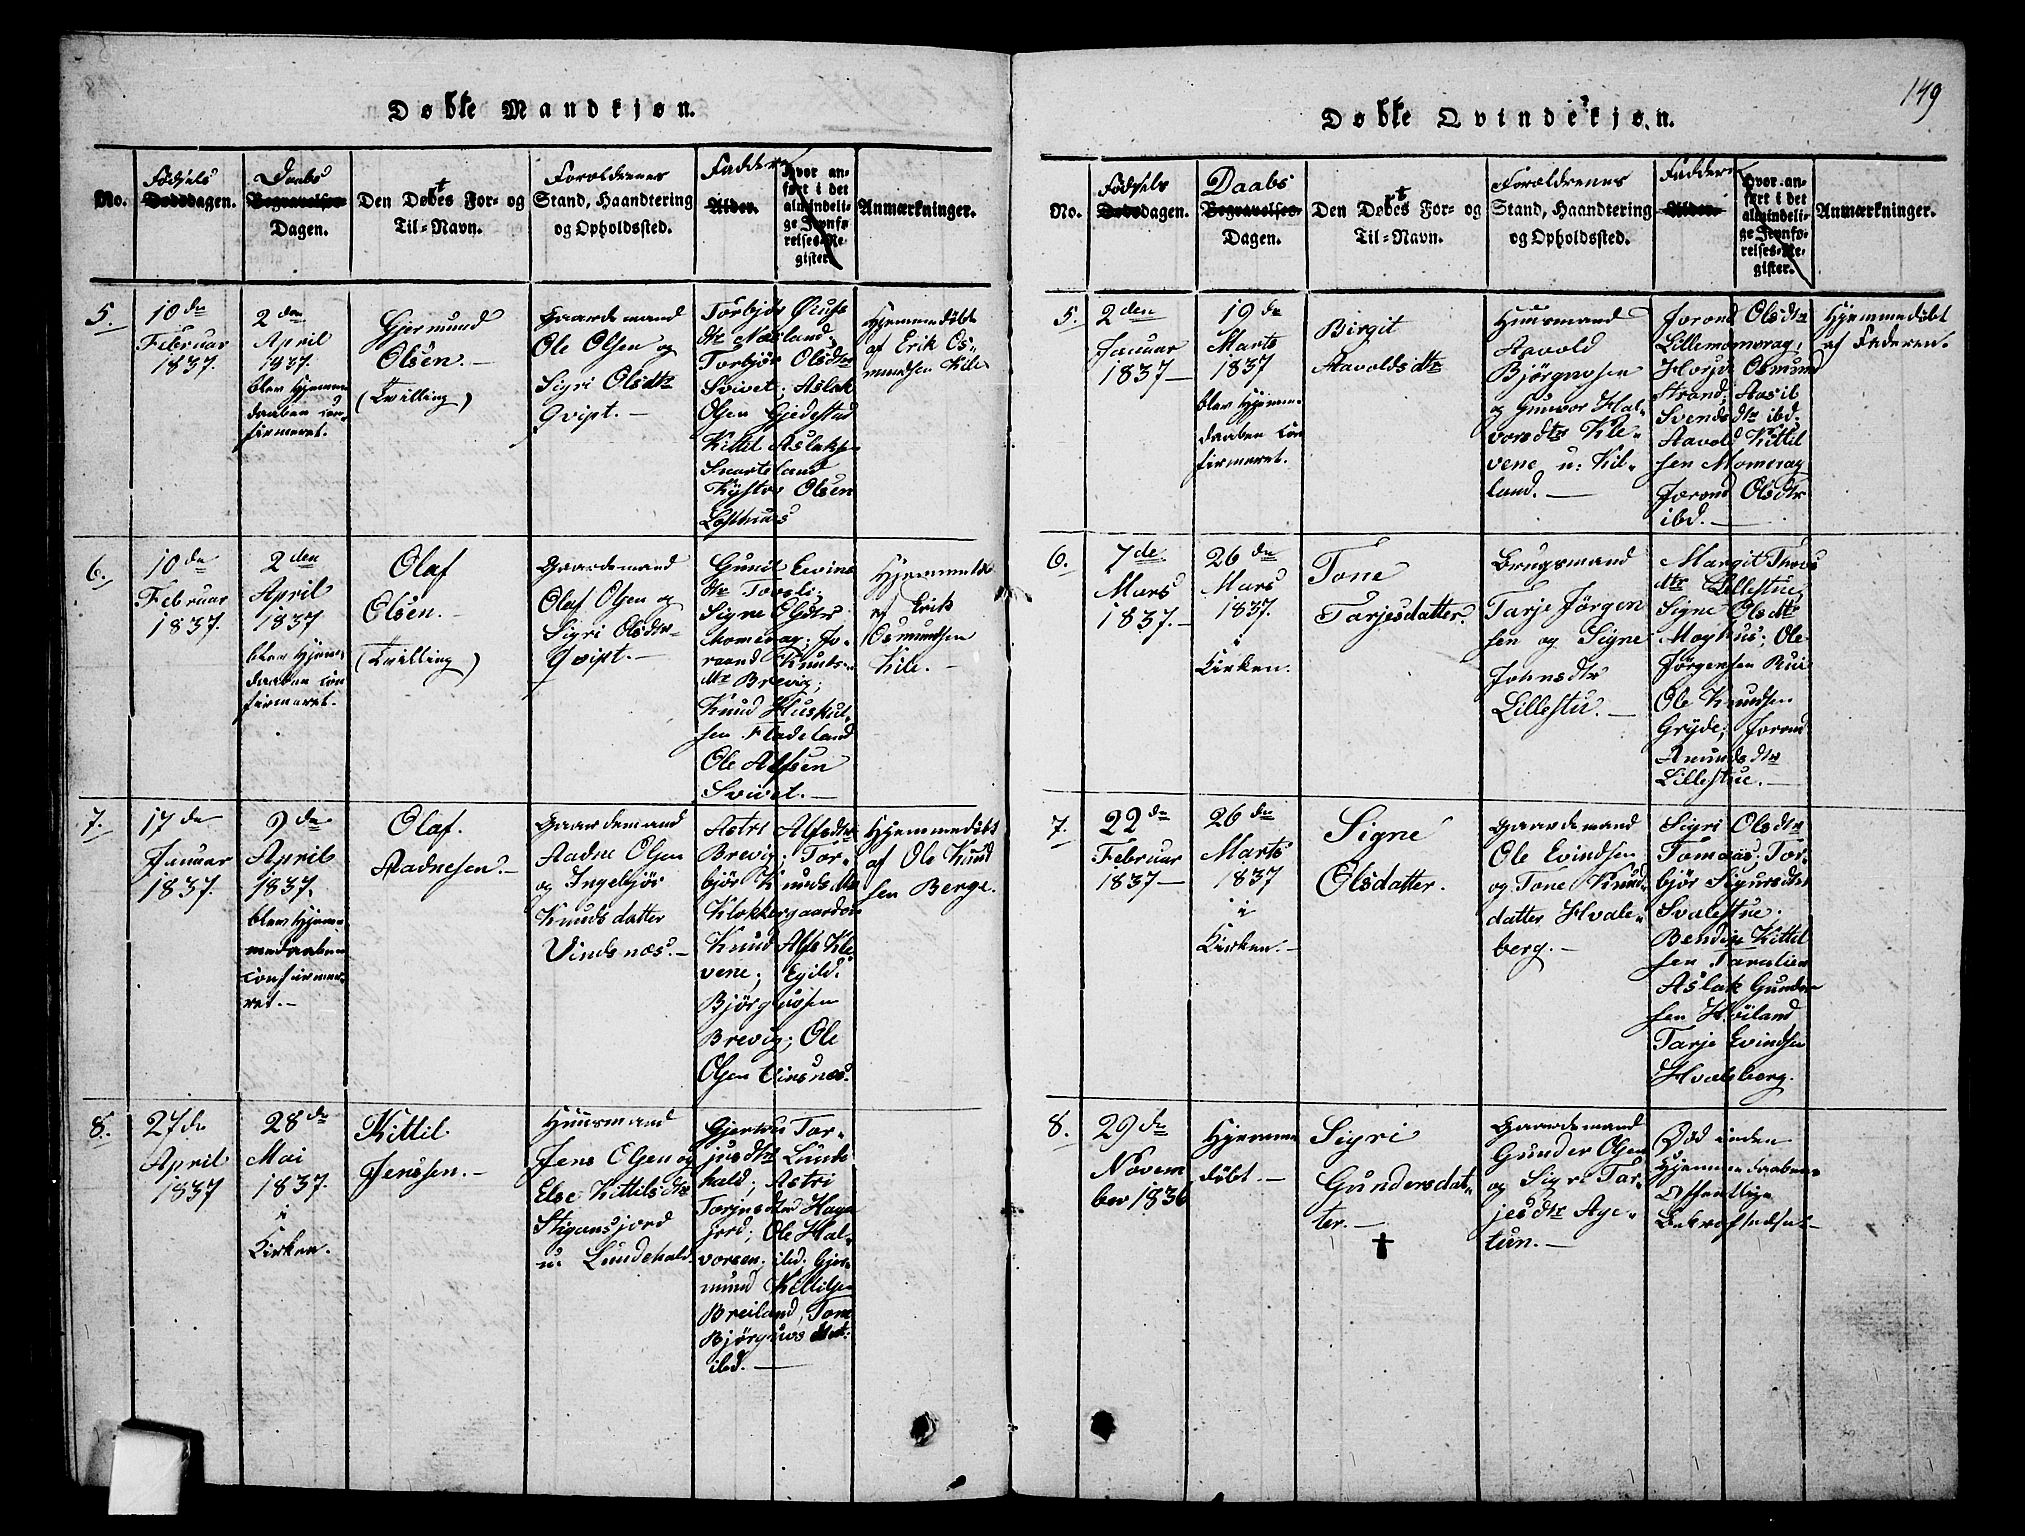 Døbte Mandkjøn.
No.
Fødsels
Dødsdagen.
Daabs
Begravelses-
Dagen.
Den Døbtes For- og
Til-Navn.
Foreldrenes
Stand, Haandtering
og Opholdssted.
Faddere
Alder.
Hvor an-
ført i det
almindeli-
ge Jevnfø-
relses-Re-
gister.
Anmærkninger.
5.
10de
Februar
1837.
2den
April
1837.
blev Hjemme
daaben con-
firmeret.
Gjermund
Olsen.
(Tvilling)
Gaardemand
Ole Olsen og
Sigri Olsdtr
Qvipt.
Torbjør
dtr Næsland,
Torbjør Olsdtr
Svivet; Aslak
Olsen Gjedestad
Kittil Aslaksen
Snarteland
Olsen
Lofthuus
Hjemmedøbt
af Erik Os-
mundsen Kile
6.
10de
Februar
1837.
2den
April
1837
blev Hjem-
daaben con
firmeret.
Olaf
Olsen.
(Tvilling)
Gaardemand
Olaf Olsen og
Sigri Olsdtr
Qvipt.
Gunil Eevins
dtr Tovsli;
Signe Olsdtr
Momrag; Jo-
raand Knuts-
dtr Brevig;
Knud Huskul-
sen Fladeland
Ole Alfsen
Svivet.
Hjemmedøbt
af Erik
Osmundsen
Kile.
7.
17de
Januar
1837.
2den
April
1837.
blev Hjem-
medaaben
confirme-
ret.
Olaf.
Aadnesen.
Gaardemand
Aadne Olsen
og Ingebjør
Knudsdatter
Vindsnæs.
Astri Alfsdtr
Brevig; Tor-
bjør Knudsdtr
Klokkergaarden
Knud Alfs Kle
vene; Egild
Bjørgusen
Brevig; Ole
Olsen Vinsnæs.
Hjemmedøbt
af Ole Knud
sen Berge.
8.
27de
April
1837
28de
Mai
1837.
i
Kirken.
Kittil
Jenssen.
Huusmand
Jens Olsen og
Else Kittilsdtr
Stigansjord
u. Lundehald.
Gjeru Tar-
jusdtr Lunde
hald; Astri
Torjusdtr Haga
jord; Ole Hal-
vorsen ibd. Gjer-
mund Kittilsen
Breiland, Tone
Bjørgus datt:
ibd.
149
Døbte Qvindekjøn.
No.
Fødsels
Dødsdagen.
Daabs
Begravelses-
Dagen.
Den Døbtes For- og
Til-Navn.
Foreldrenes
Stand, Haandtering
og Opholdssted.
Faddere
Alder.
Hvor an-
ført i det
almindeli-
ge Jevnfø-
relses-Re-
gister.
Anmærkninger.
5.
2den
Januar
1837
19de
Marts
1837
blev Hjemme
daaben con
firmeret.
Birgit
Aavoldsdtr
Huusmand
Aavold
Bjørgusen
og Gunvor Hal-
vorsdtr Kle-
vene u: Kil-
land.
Jorond Olsdtr
Lillemomrag;
Osmund
Strand; Aasil
Svendsdtr ibd.
Aavold Kittil
sen Momrag
Jorond Olsdtr
ibd.
Hjemmedøbt
af Faderen.
6.
7de
Mars
1837.
26de
Mars
1837.
i
Kirken.
Tone
Tarjesdatter.
Brugsmand
Tarje Jørgen
sen og Signe
Johnsdtr
Lillestu.
Margit Thovs
dtr Lillestue;
Signe Olsdtr
Moghus; Ole
Jørgensen Rui
Ole Knudsen
Gryde; Jorand
Amundsdtr
Lillestue.
7.
22de
Februar
1837
26de
Marts
1837
i
Kirken.
Signe
Olsdatter.
Gaardemand
Ole Evindsen
og Tone Knud-
datter Hvale-
berg.
Sigri Olsdtr
Tomaas; Tor-
bjør Sigursdtr
Svalestue.
Bendix Kittil
sen Taralien
Aslak Gunder
sen Høiland
Tarje Evindsen
Hvalsberg.
8.
29de
Novem
ber 1836
Hjemme
døbt.
Sigri
Gundersdat-
ter.
†
Gaardemand
Gunder Olsen
og Sigri Tar-
jesdtr Age-
tun.
Død inden
Hjemmedaabens
Offentlige
Bekræftelse.